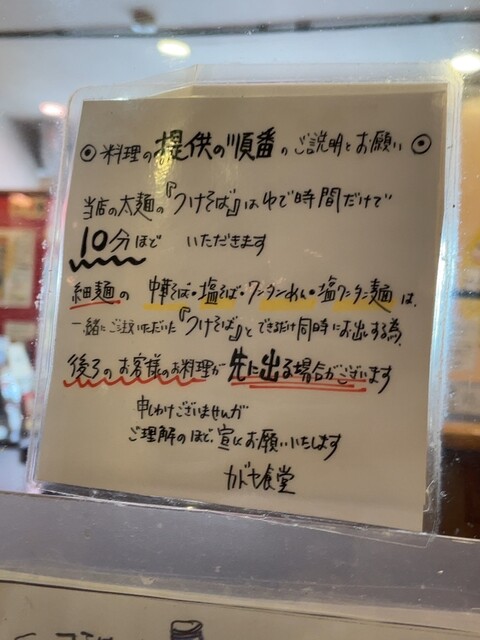 ◎料理の提供の順番のご説明とお願い◎
当店の太麺の『つけそば』はゆで時間だけで
10分ほど いただきます
細麺の 中華そば・塩そば・ワンタンめん・塩ワンタン麺は、
一緒にご注文いただいた『つけそば』とできるだけ同時にお出しする為、
後ろのお客様のお料理が先に出る場合がございます
申しわけございませんが
ご理解のほど、宜しくお願いいたします
カドヤ食堂